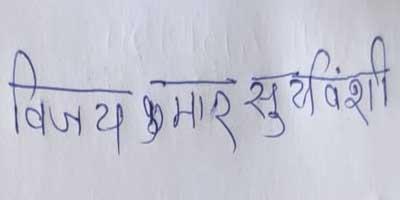 विजय कुमार सुर्यवंशी